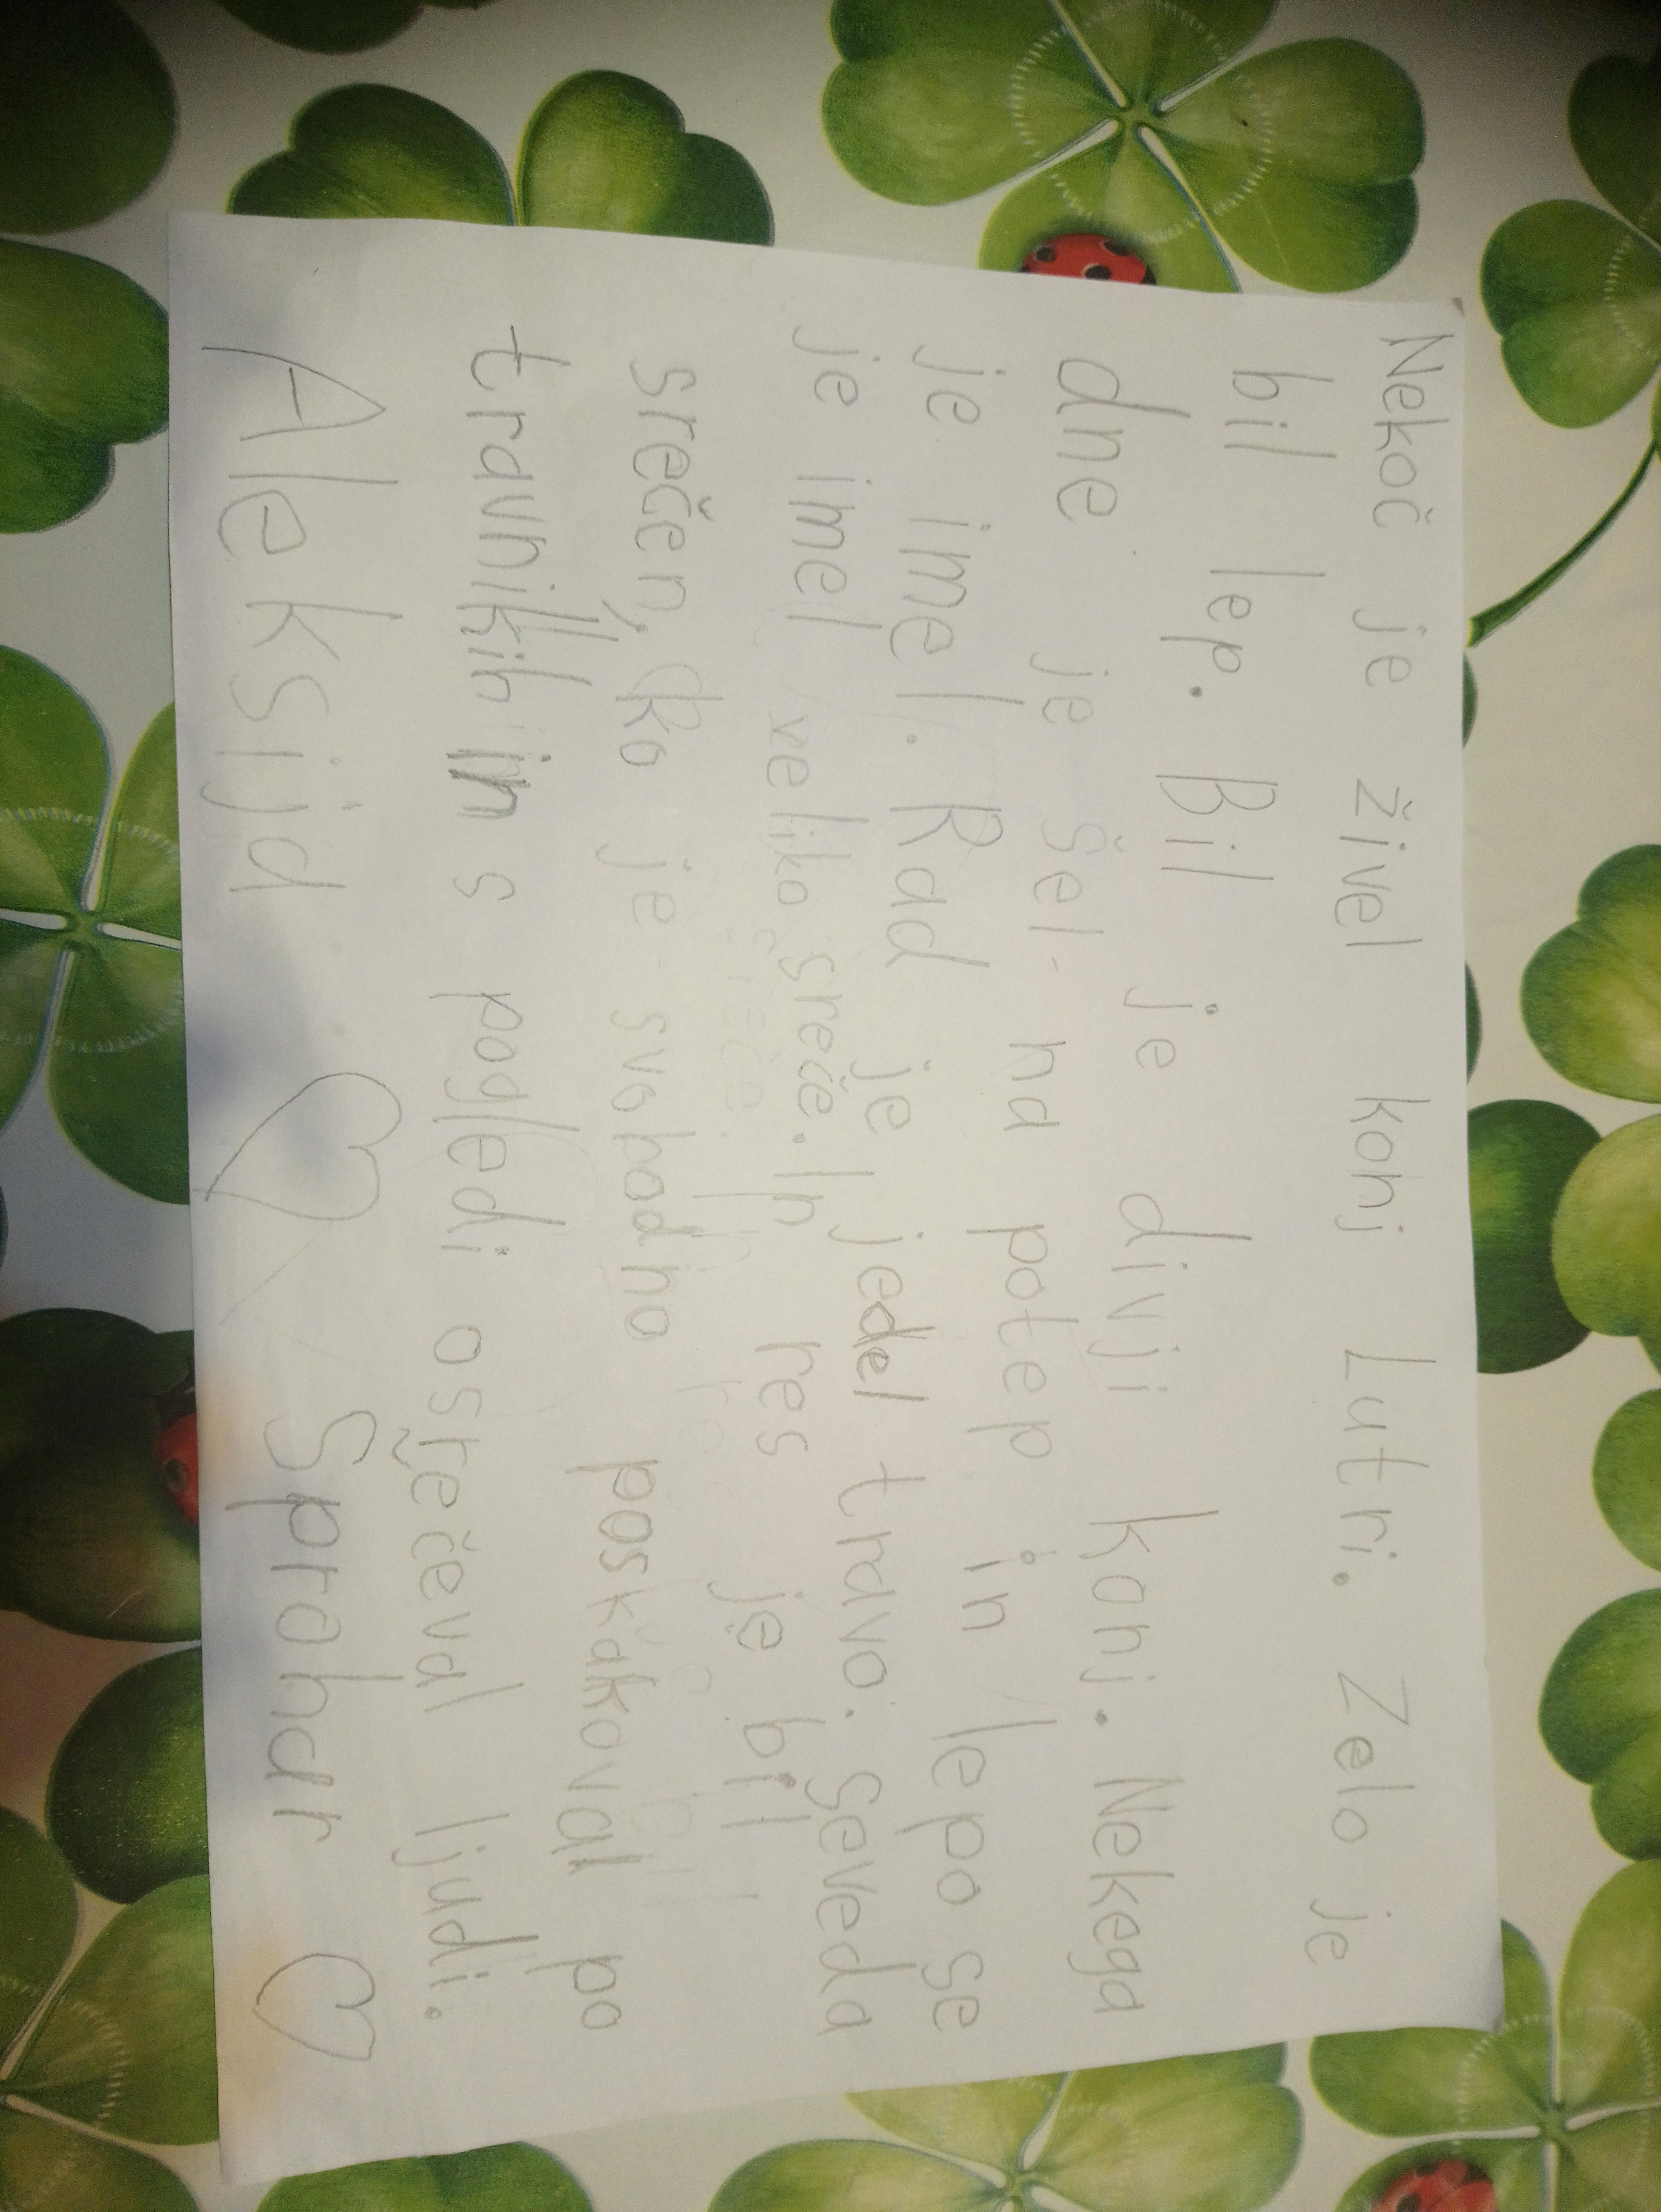 Nekoč je živel konj Lutri. Zelo je
bil lep. Bil je divji konj. Nekega
dne je šel na potep in lepo se
je imel. Rad je jedel travo. Seveda
je imel veliko sreče. In res je bil
srečen, ko je svobodno poskakoval po
travnikih in s pogledi osrečeval ljudi.
Aleksija Sprahar